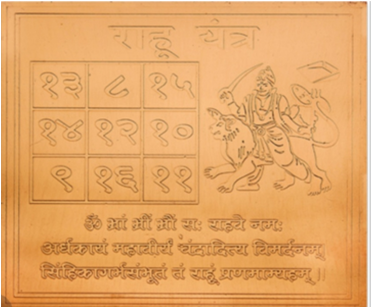 राहू यंत्र
१३ ८ १५
१४ १२ १०
९ १६ ११
ॐ भ्रां भ्रीं भ्रौं सः राहवे नमः
अर्धकायं महावीर्यं चंद्रादित्य विमर्दनम्
सिंहिकागर्भसंभूतं तं राहूं प्रणमाम्यहम् ॥